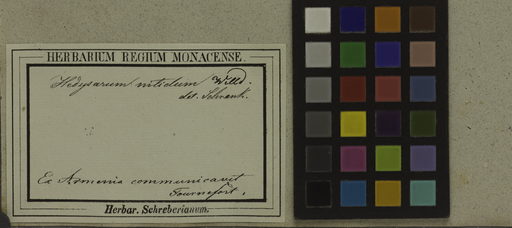 HERBARIUM REGIUM MONACENSE.
Hedysarum nitidum Willd.
det. Schrank.
Ex Armenia communicavit
Tournefort.
Herbar. Schreberianum.